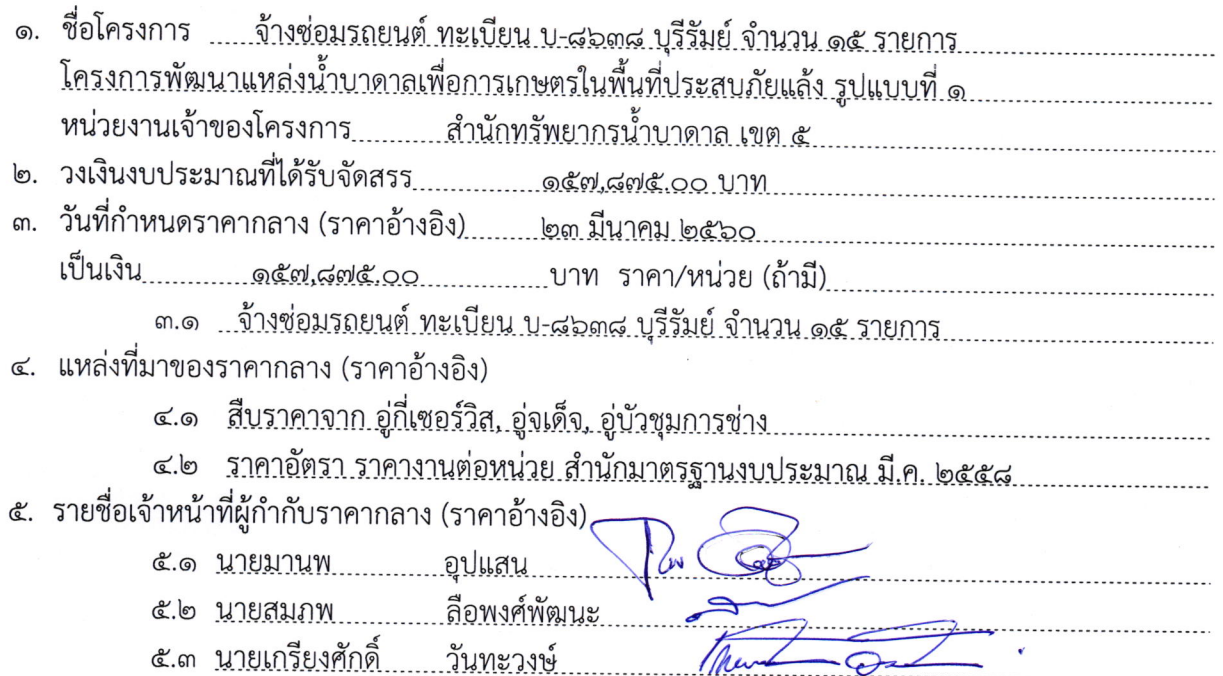 ๑. ชื่อโครงการ จ้างซ่อมรถยนต์ ทะเบียน บ-๘๖๓๘ บุรีรัมย์ จำนวน ๑๕ รายการ
โครงการพัฒนาแหล่งน้ำบาดาลเพื่อการเกษตรในพื้นที่ประสบภัยแล้ง รูปแบบที่ ๑
หน่วยงานเจ้าของโครงการ สำนักทรัพยากรน้ำบาดาล เขต ๕
๒. วงเงินงบประมาณที่ได้รับจัดสรร ๑๕๗,๘๗๕.๐๐ บาท
๓. วันที่กำหนดราคากลาง (ราคาอ้างอิง) ๒๓ มีนาคม ๒๕๖๐
เป็นเงิน ๑๕๗,๘๗๕.๐๐ บาท ราคา/หน่วย (ถ้ามี)
๓.๑ จ้างซ่อมรถยนต์ ทะเบียน บ-๘๖๓๘ บุรีรัมย์ จำนวน ๑๕ รายการ
๔. แหล่งที่มาของราคากลาง (ราคาอ้างอิง)
๔.๑ สืบราคาจาก อู่กี่เซอร์วิส, อู่จเด็จ, อู่บัวชุมการช่าง
๔.๒ ราคาอัตรา ราคางานต่อหน่วย สำนักมาตรฐานงบประมาณ มี.ค. ๒๕๕๘
๕. รายชื่อเจ้าหน้าที่ผู้กำกับราคากลาง (ราคาอ้างอิง)
๕.๑ นายมานพ อุปแสน
๕.๒ นายสมภพ ลือพงศ์พัฒนะ
๕.๓ นายเกรียงศักดิ์ วันทะวงษ์